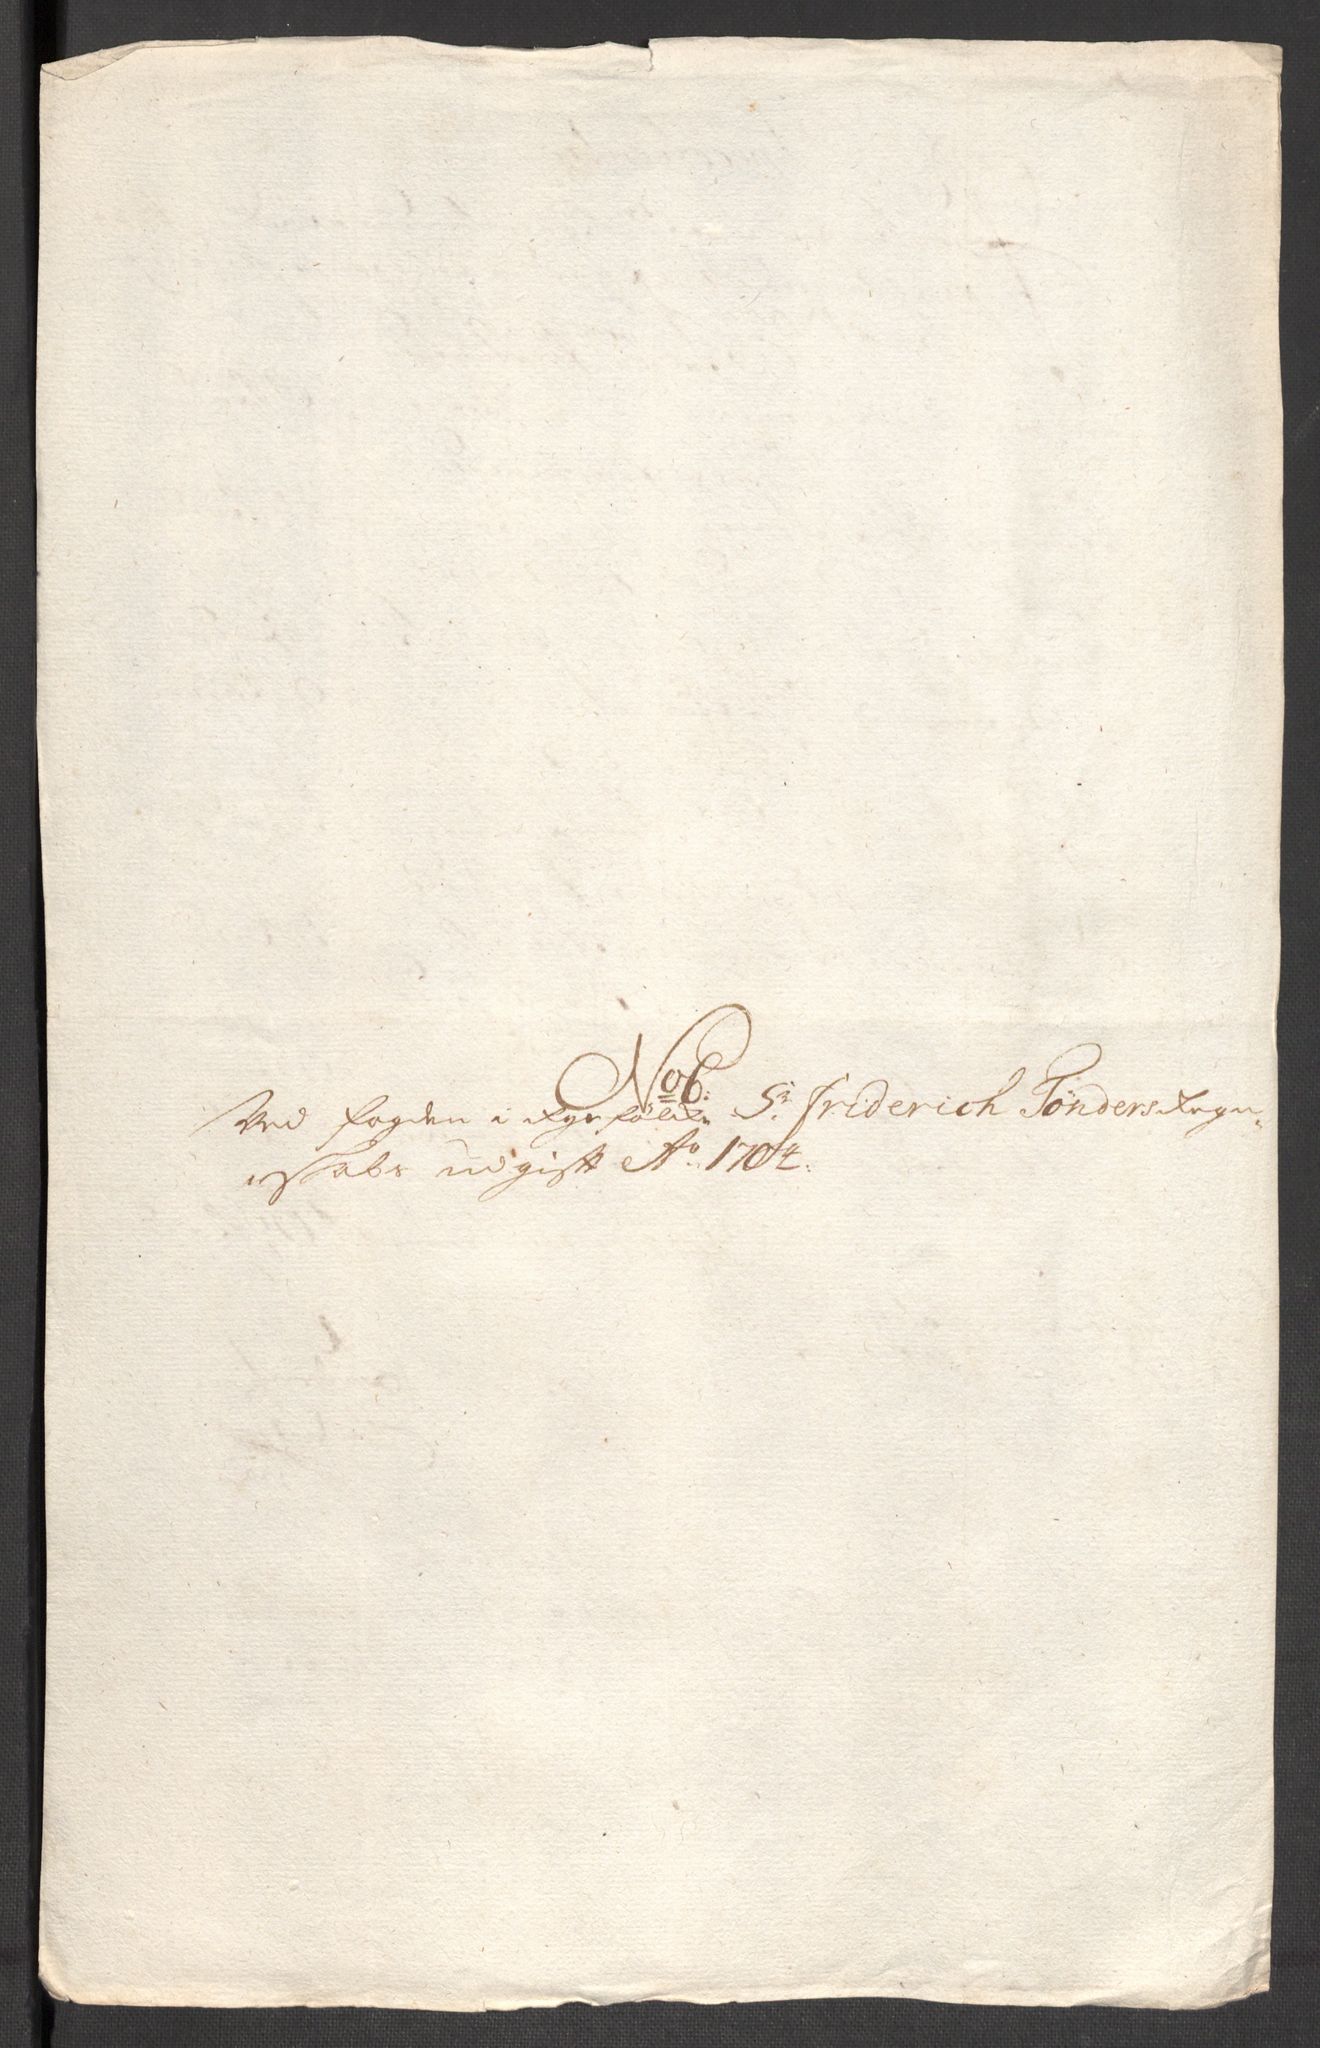 No 6.
Ved fogden i Ryefølche Sr. Friderich Tönders Regn-
skabs udgift Ao. 1704.